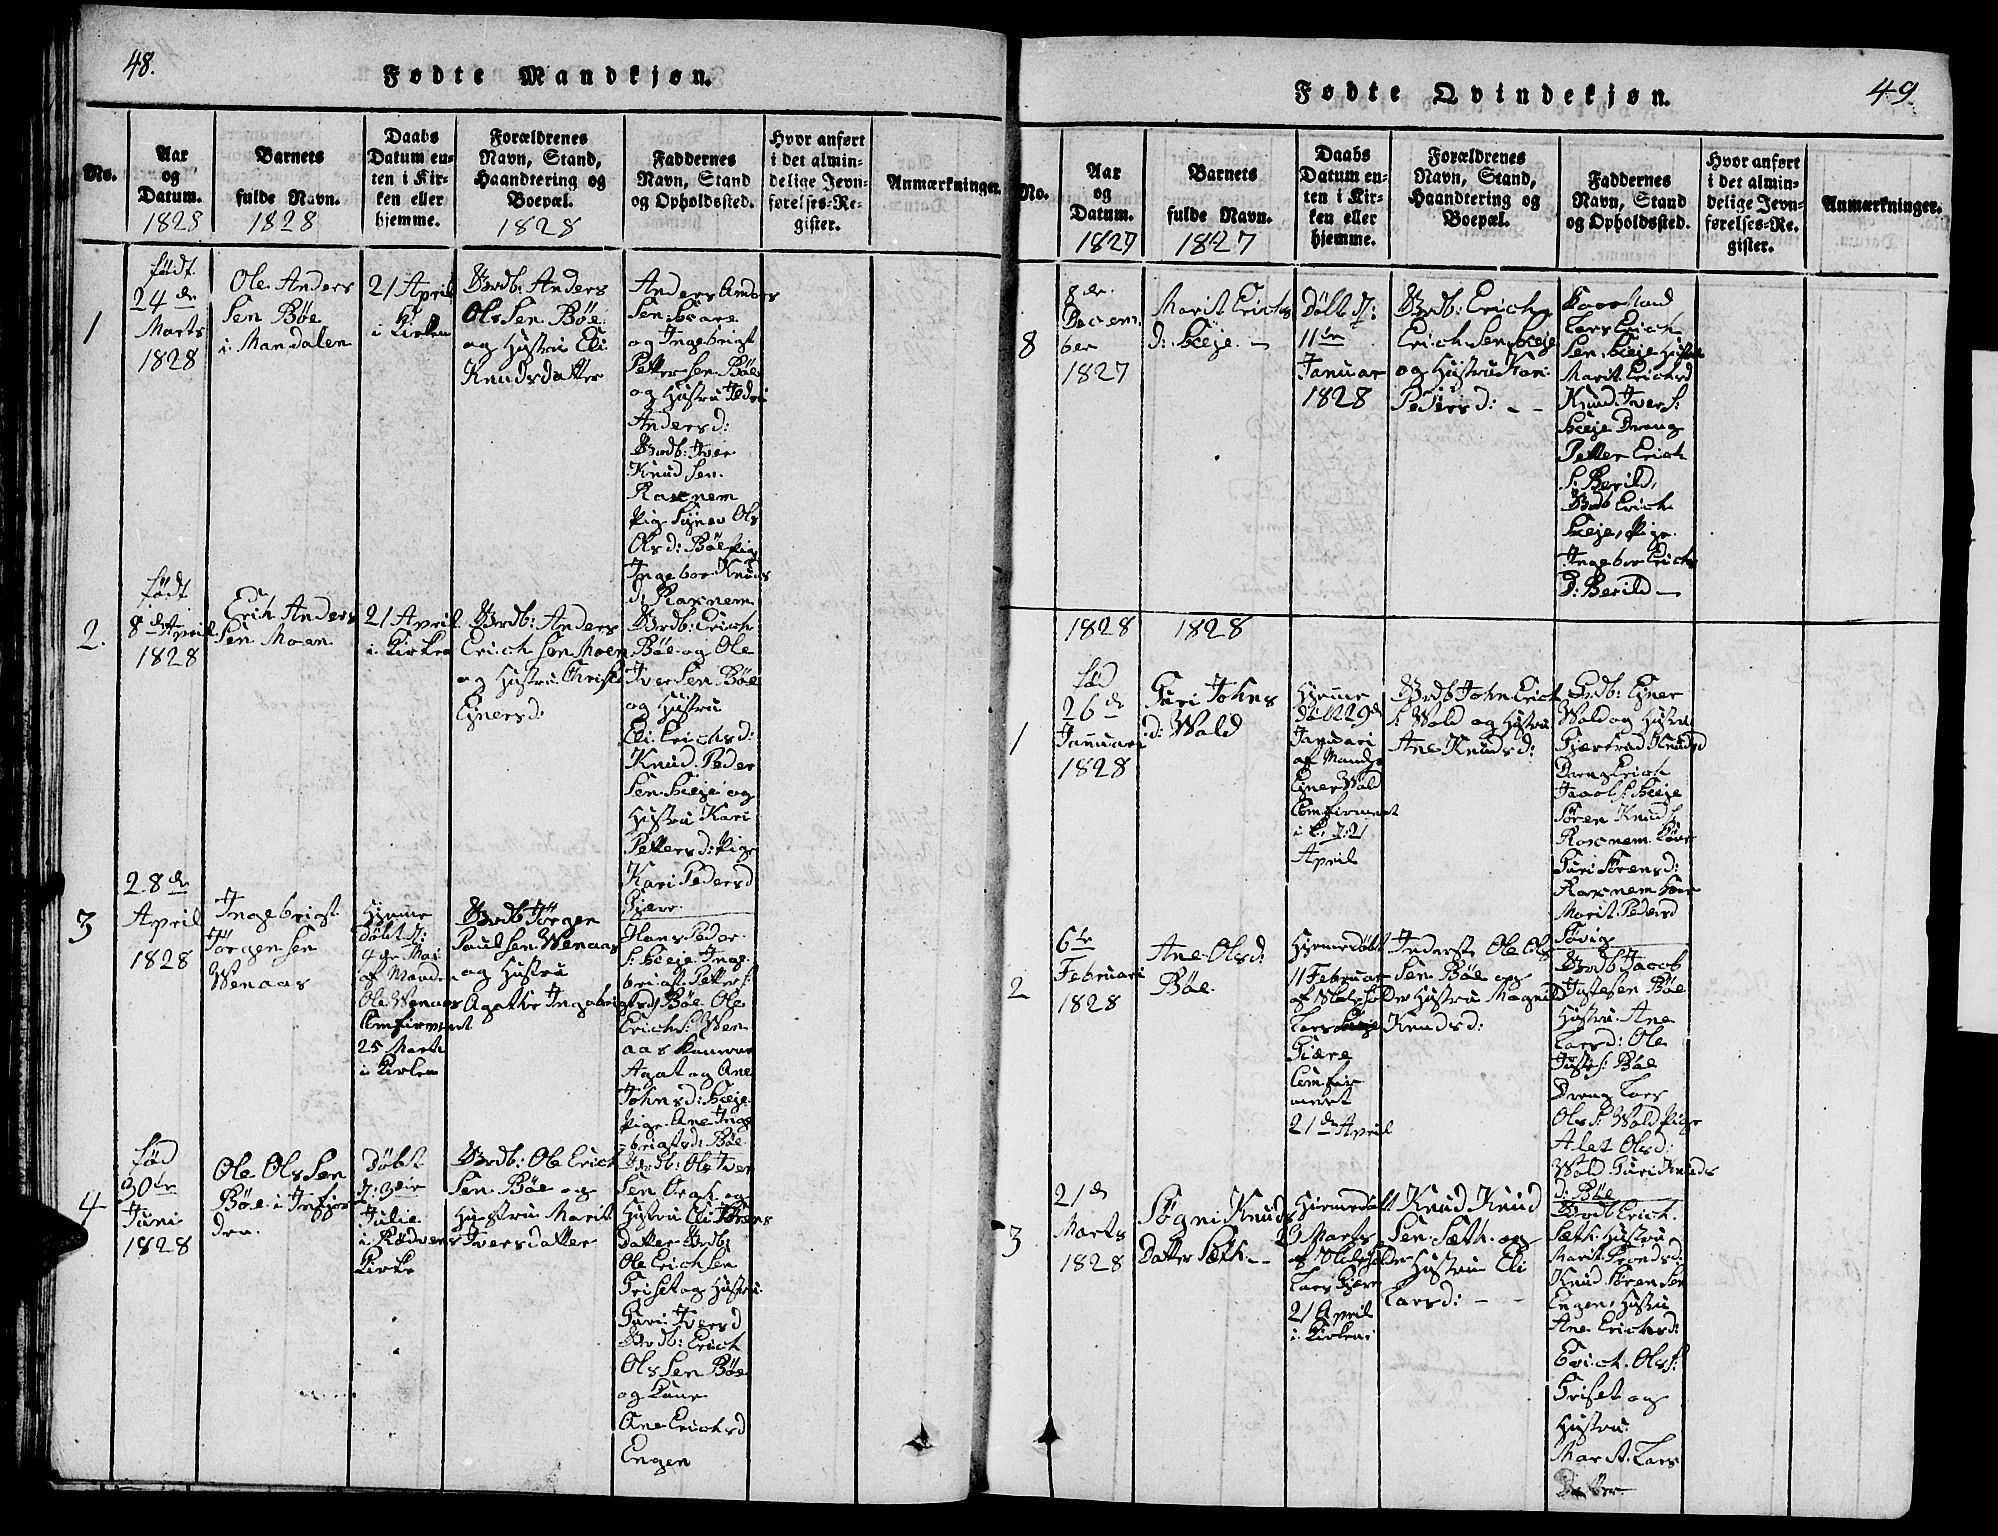 48.
Fødte Mandkjøn.
No.
Aar
og
Datum.
1828
Barnets
fulde Navn.
1828
Daabs
Datum en-
ten i Kir-
ken eller
hjemme.
Forældrenes
Navn, Stand,
Haandtering og
Boepæl.
1828
Faddernes
Navn, Stand
og Opholdssted.
Hvor anført
i det almin-
delige Jevn-
førelses-Re-
gister.
Anmærkninger.
1
født
24de
Marts
1828
Ole Anders
Sen Böe
i Mandalen
21 April
i Kirken
Brdb: Anders
Olssen Böe
og Hustru Eli
Knudsdatter
Anders
og Ingebrigt
Petter Sen Böe
og Hustru
Andersd:
Brdb: Iver
Knud Sen
Raxnem
Pig
Olsd: Böe Pig
Ingebor Knuds
d: Raxnem
2.
født
8de April
1828
Erich Anders
Sen Moen
21 April
i Kirken
Brdb: Anders
Erich Sen Moen
og Hustru
Ejnersd:
Brdb: Erich
Böe og Ole
Iver Sen Böe
og Hustru
Eli Erichsd:
Knud Peder
Sen Skeje og
Hustru Kari
Pettersd: Pige
Kari Pedersd
Gjære
3
28de
April
1828
Ingebrigt
Jörgen Sen
Wenaas
Hjemme
döbt d:
4de Mai
af Manden
Ole Wenaas
Comfirmeret
25 Marts
i Kirken
Brdb Jörgen
Poul Sen Wenaas
og Hustru
Agathe Ingebrigtsd
Hans Peder
S: Skeje Inge
brigt Petter S:
Böe Ole
Erich S: Wen
aas
Agat og Ane
Johnsd: Skeje
Pige Ane Inge
brigtsd: Böe
4
fød
30te
Juni
1828
Ole Ols Sen
Böe i
den
Döbt
d: 3die
Julie
i Rödvens
Kirke
Brdb: Ole Erich
Sen Böe og
Hustru Marit
Iversdatter
Brdb: Ole Iver
Sen og
Hustru Eli
datter Brdb:
Ole Erich Sen
Griset og Hustru
Guri Iversd
Brdb: Erich
Ols Sen Böe
og Kone
Ane Erichsd
Engen
49.
Fødte Qvindekjøn.
No.
Aar
og
Datum.
1827
Barnets
fulde Navn.
1827
Daabs
Datum en-
ten i Kir-
ken eller
hjemme.
Forældrenes
Navn, Stand,
Haandtering og
Boepæl.
Faddernes
Navn, Stand
og Opholdssted.
Hvor anført
i det almin-
delige Jevn-
førelses-Re-
gister.
Anmærkninger.
8
8de
Decem
ber
1827
Marit Erichs
d: Skeje
Döbt d:
11te
Januar
1828
Brdb: Erich
Erich Sen Skeje
og Hustru Kari
Pedersd: - -
Lars Erich
Sen Skeje Hustru
Marit Erichsd
Knud Iver S:
Skeje Dreng
Petter Erich
S: Berild,
Brdb Erich
Skeje, Pige
Ingebor Erichs
D: Berild
1828
1828
1
fød
26de
Januari
1828
Guri Johns
d: Wold
Hjemme
döbt 29de
Januari
af Mand
Ejner Wold
Comfirmeret
i K: d: 21
April
Brdb John Erich
S: Wold og Hustru
Ane Knudsd:
Brdb: Ejner
Wold og Hustru
Gjertrud Knudsd
Dreng Erich
Jacob S: Skeje
Sören Knud S:
Raxnem Kone
Guri Sörensd:
Raxnem
Marit Pedersd
2
6te
Februari
1828
Ane Olsd:
Böe
Hjemmedöbt
11 Februar
af
Lars
Gjære
Comfir
meret
21de April
Inderste Ole Ols
Sen Böe og
Hustru Magnild
Knudsd:
Brdb Jacob
Jostesen Böe
Hustru Ane
Larsd: Ole
Joste S: Böe
Dreng Lars
Ols S: Wold Pige
Alet Olsd:
Wold Guri Knuds
d: Böe
3
21de
Marts
1828
Søgni Knuds
Datter Sæth - -
Hjemmedöbt
23 Marts
af
Lars Gjære
21 April
i Kirken
Knud Knud
Sen Sæth og
Hustru Eli
Larsd: - -
Brdb Erich
Sæth Hustru
Marit Trondsd:
Knud Sören Sen
Engen, Hustru
Ane Erichsd:
Erich Ols S:
Griset og
Hustru
Marit Lars
Datter